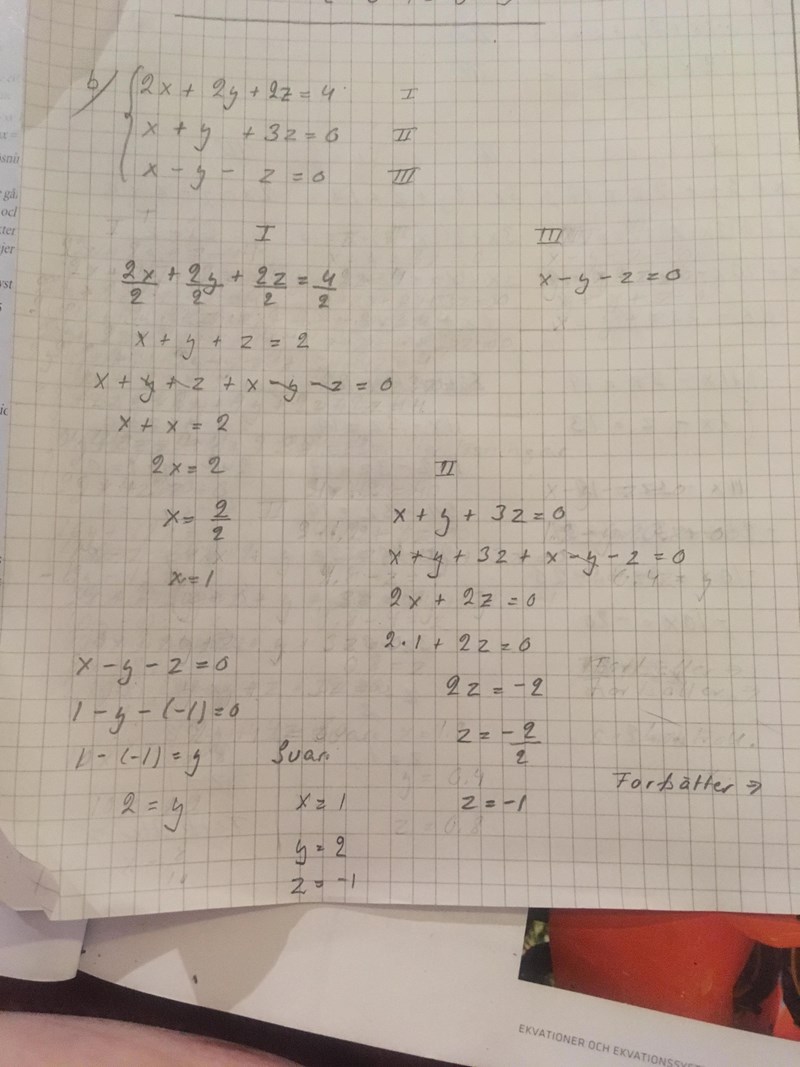 b) 2x + 2y + 2z = 4 I
x + y + 3z = 0 II
x - y - z = 0 III
I
2x/2 + 2y/2 + 2z/2 = 4/2
x + y + z = 2
x + y + z + x - y - z = 0
x + x = 2
2x = 2
x = 2/2
x = 1
III
x - y - z = 0
II
x + y + 3z = 0
x + y + 3z + x - y - z = 0
2x + 2z = 0
2·1 + 2z = 0
2z = -2
z = -2/2
z = -1
x - y - z = 0
1 - y - (-1) = 0
1 - (-1) = y
2 = y
Svar:
x = 1
y = 2
z = -1
Forsätter →
EKVATIONER OCH EKVATIONSSY